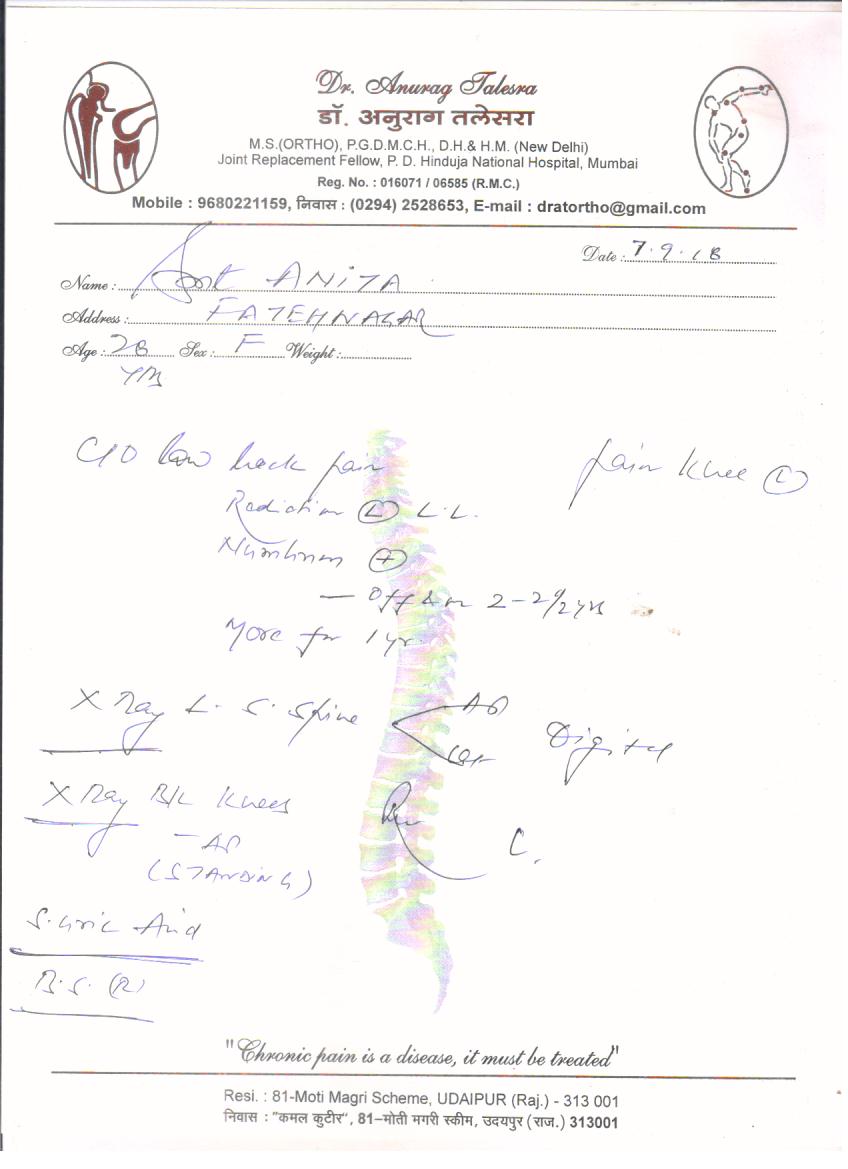 Dr. Anurag Talesra
डॉ. अनुराग तलेसरा
M.S.(ORTHO), P.G.D.M.C.H., D.H.& H.M. (New Delhi)
Joint Replacement Fellow, P. D. Hinduja National Hospital, Mumbai
Reg. No. : 016071 / 06585 (R.M.C.)
Mobile : 9680221159, निवास : (0294) 2528653, E-mail : dratortho@gmail.com
Date : 7.9.18
Name : Smt ANITA
Address : FATEHNAGAR
Age : 28 Sex : F Weight :
Yrs
C/O low back pain
pain knee (L)
Radiation (L) L.L.
Numbness (+)
— Off & on 2-2½ yrs
More for 1 yr.
X Ray L. S. Spine AP
Lat
Digital
X Ray B/L Knees
— AP
(STANDING)
S. Uric Acid
B.S. (R)
"Chronic pain is a disease, it must be treated"
Resi. : 81-Moti Magri Scheme, UDAIPUR (Raj.) - 313 001
निवास : "कमल कुटीर", 81–मोती मगरी स्कीम, उदयपुर (राज.) 313001